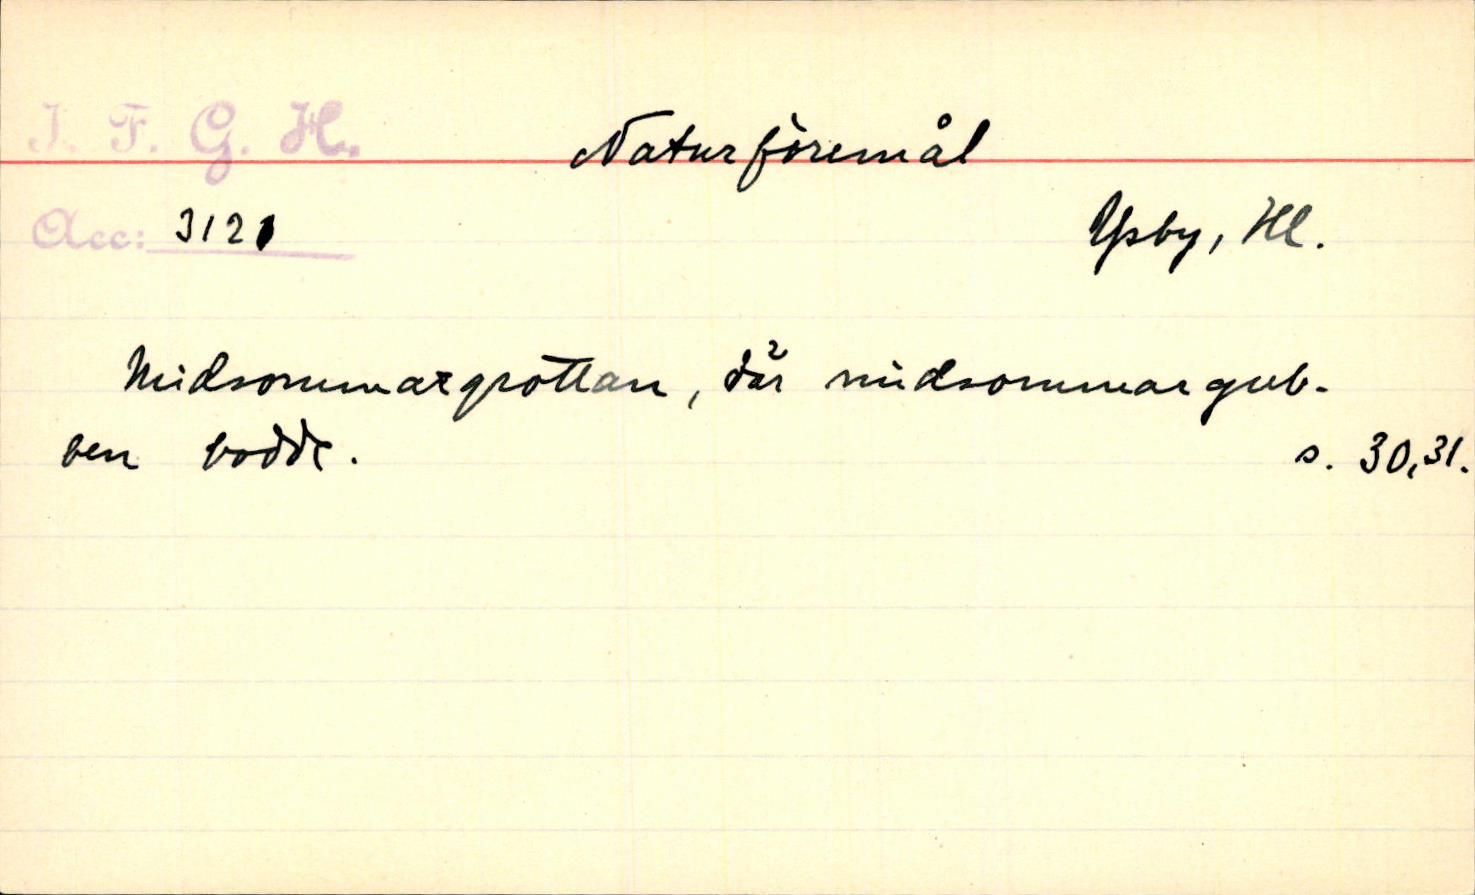 I. F. G. H.
Naturföremål
Acc: 3121
Ysby, Hl.
Midsommargrottan, där midsommargub-
ben bodde.
s. 30, 31.